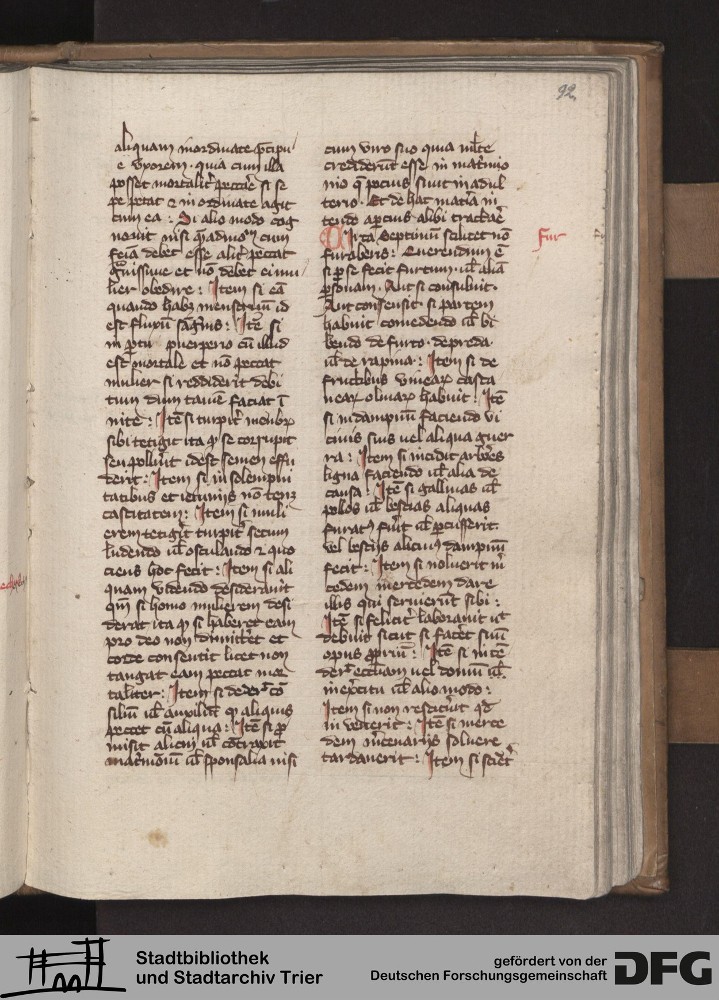 92
aliquam inordinate p̄cipu
e vxorem · quia cum illa
posset mortalit᷑ peccãe si se
pe petat ⁊ inordinate agit
cum ea : Si alio modo cog
nouit nisi q̄admoꝯ cum
feīa debet esse alit᷑ peccat
g̊uissime et nō debet ei mu
lier obedire : Item si eā
quando habꝫ menstruū id
est fluxū sāgīnis : Itē si
in ꝑtu puerperio cū illud
est mortale et nō peccat
mulier si reddiderit debi
tum dum tamē faciat ī
nite : Itē si turpit᷑ menbꝝ
sibi tetigit ita ꝙ se corrupit
seu polluit idest semen effu
derit : Item si in solempni
tatibus et ieiuniis nō tenꝫ
castitatem : Item si muli
erem tetigit turpit᷑ secum
ludendo ul̄ osculando ⁊ quo
ciens hoc fecit : Item si ali
quam videndo desiderauit
qm̄ si homo mulierem desi
derat ita ꝙ si haberet eam
pro deo non dimitteret et
corde consentit licet non
tangat eam peccat mor
taliter : Item si dederit cō
siliū ul̄ auxiliū ꝙ aliquis
peccet cū aliqua : Itē si ꝓ
misit alicui ul̄ cōtraxit
mat᷑moīuꝫ ul̄ sponsalia nisi
cum viro suo quia
crediderūt esse in mat᷑monio
nio q̄ pocius sunt in adul
terio · Et de hac mat̄ia in
tendo apercius alibi tractaē
Circa Septimū scilicet nō
furaberis : Querendum ē
si ꝑ se fecit furtum ul̄ aliā
ꝑsonam · Aut si consuluit ·
Aut consensit · si partem
habuit comedendo ul̄ bi
bendo de furto · de preda ·
ul̄ de rapina · : Item si de
fructibus vinearꝝ casta
nearꝝ oliuarꝝ habuit : Itē
si in dampnū faciendo vi
cinis suis uel aliqua guer
ra : Item si incidit arbōes
ligna faciendo ul̄ alia de
causa : Itē si gallinas ul̄
pullos ul̄ bestias aliquas
furatꝰ fūit ul̄ ꝑcusserit
vel bestijs alicuiꝰ dampnū
fecit : Item si noluerit
mercedem dare
illis qui seruierūt sibi :
Itē si felicit᷑ laborauit ut
debuit sicut si facēt suū
opus ꝓpriū : Itē si incē
der᷑ eccliam uel domū ul̄
in ex̄citu ul̄ alio modo :
Item si non restituit qd̄
inuenerit : Itē si merce
dem m̄cenarijs soluere
tardauerit : Item si
Fur
Stadtbibliothek
und Stadtarchiv Trier
gefördert von der
Deutschen Forschungsgemeinschaft
DFG